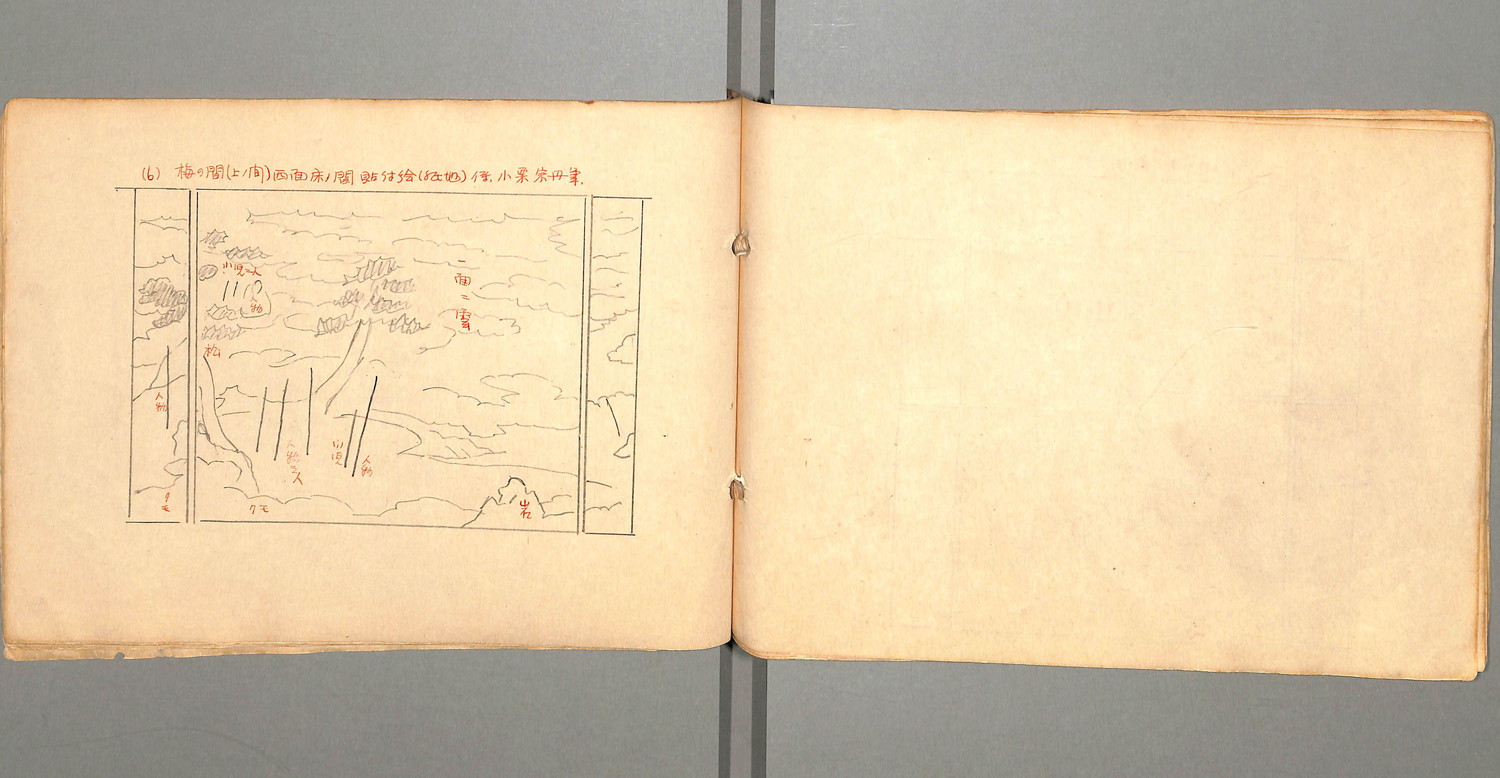 (6) 梅の間(上ノ間)西面床ノ間貼付絵(紙地)伝、小栗宗丹筆.
小児二人
人物
一面ニ雲
松
人物
人物三人
小児
人物
クモ
クモ
岩